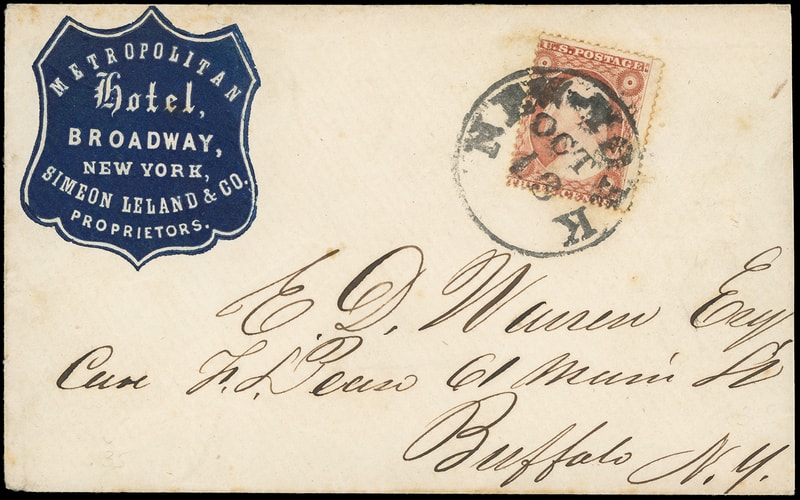 METROPOLITAN
Hotel,
BROADWAY,
NEW YORK,
SIMEON LELAND & CO.
PROPRIETORS.
U.S. POSTAGE
NEW-YORK
OCT
E. D. Warren Esq
Care F. S. Pease 61 Main St
Buffalo N.Y.